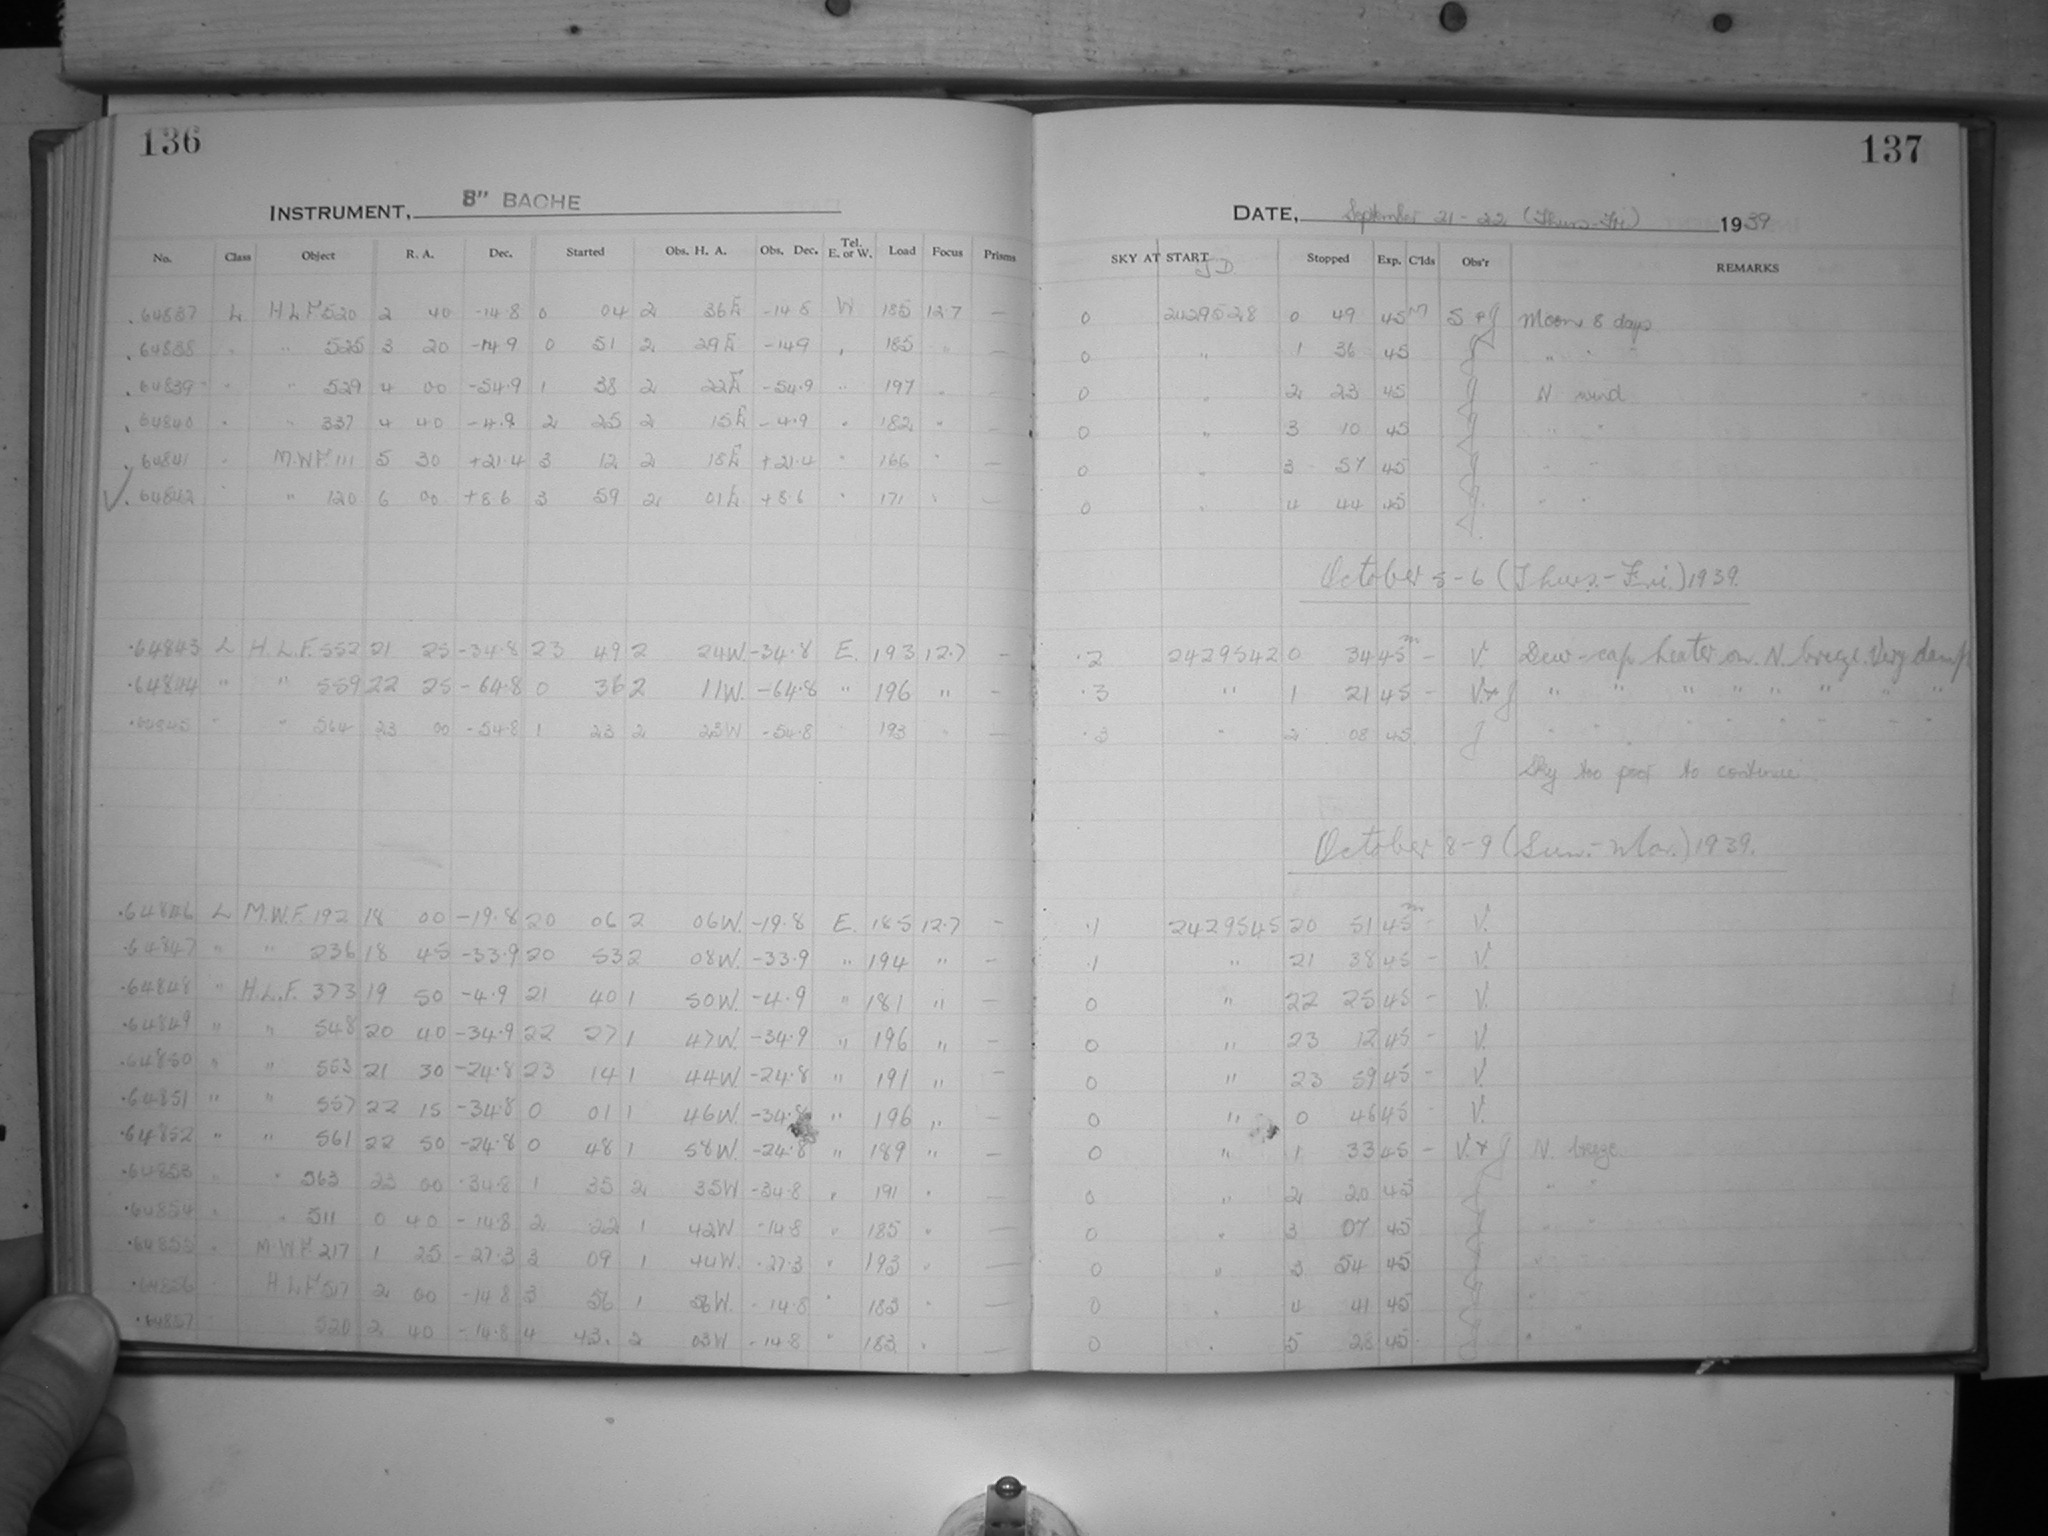 136
INSTRUMENT, 8" BACHE
No. Class Object R. A. Dec. Started Obs. H. A. Obs. Dec. Tel. E. or W. Load Focus Prisms
.64837 L H L F 520 2 40 -14.8 0 04 2 36E -14.8 W 185 12.7 —
.64838 " " 525 3 20 -14.9 0 51 2 29E -14.9 " 185 " —
.64839 " " 529 4 00 -54.9 1 38 2 22E -54.9 " 197 " —
.64840 " " 337 4 40 -4.9 2 25 2 15E -4.9 " 182 " —
.64841 " M.W.F. 111 5 30 +21.4 3 12 2 18E +21.4 " 166 " —
√. 64842 " " 120 6 00 +8.6 3 59 2 01E +8.6 " 171 " —
.64843 L H.L.F. 552 21 25 -34.8 23 49 2 24W. -34.8 E. 193 12.7 —
.64844 " " 559 22 25 -64.8 0 36 2 11W. -64.8 " 196 " —
.64845 " " 564 23 00 -54.8 1 23 2 23W -54.8 193 " —
.64846 L M.W.F. 192 18 00 -19.8 20 06 2 06W. -19.8 E. 185 12.7 —
.64847 " " 236 18 45 -33.9 20 53 2 08W. -33.9 " 194 " —
.64848 " H.L.F. 373 19 50 -4.9 21 40 1 50W. -4.9 " 181 " —
.64849 " " 548 20 40 -34.9 22 27 1 47W. -34.9 " 196 " —
.64850 " " 553 21 30 -24.8 23 14 1 44W. -24.8 " 191 " —
.64851 " " 557 22 15 -34.8 0 01 1 46W. -34.8 " 196 " —
.64852 " " 561 22 50 -24.8 0 48 1 58W. -24.8 " 189 " —
.64853 " " 563 23 00 -34.8 1 35 2 35W -34.8 " 191 " —
.64854 " " 511 0 40 -14.8 2 22 1 42W -14.8 " 185 " —
.64855 " M.W.F. 217 1 25 -27.3 3 09 1 44W. -27.3 " 193 " —
.64856 H L F 517 2 00 -14.8 3 56 1 56W. -14.8 " 183 " —
.64857 520 2 40 -14.8 4 43. 2 03W -14.8 " 183 " —
137
DATE, September 21-22 (Thurs-Fri) 1939
SKY AT START JD Stopped Exp. C'lds Obs'r REMARKS
0 2429528 0 49 45 M S + J Moon 8 days
0 " 1 36 45 J " "
0 " 2 23 45 J N wind
0 " 3 10 45 J " "
0 " 3 57 45 J " "
0 " 4 44 45 J. " "
October 5-6 (Thurs.-Fri.) 1939.
.2 2429542 0 34 45m - V. Dew-cap heater on. N. breeze. Very damp
.3 " 1 21 45 - V.+J " " " " " " " "
.3 " 2 08 45 J " " " " " " " "
Sky too poor to continue.
October 8-9 (Sun.-Mon.) 1939.
.1 2429545 20 51 45m - V.
.1 " 21 38 45 - V.
0 " 22 25 45 - V.
0 " 23 12 45 - V.
0 " 23 59 45 - V.
0 " 0 46 45 - V.
0 " 1 33 45 - V.+J N. breeze.
0 " 2 20 45 J " "
0 " 3 07 45 J " "
0 " 3 54 45 J "
0 " 4 41 45 J "
0 " 5 28 45 J " "